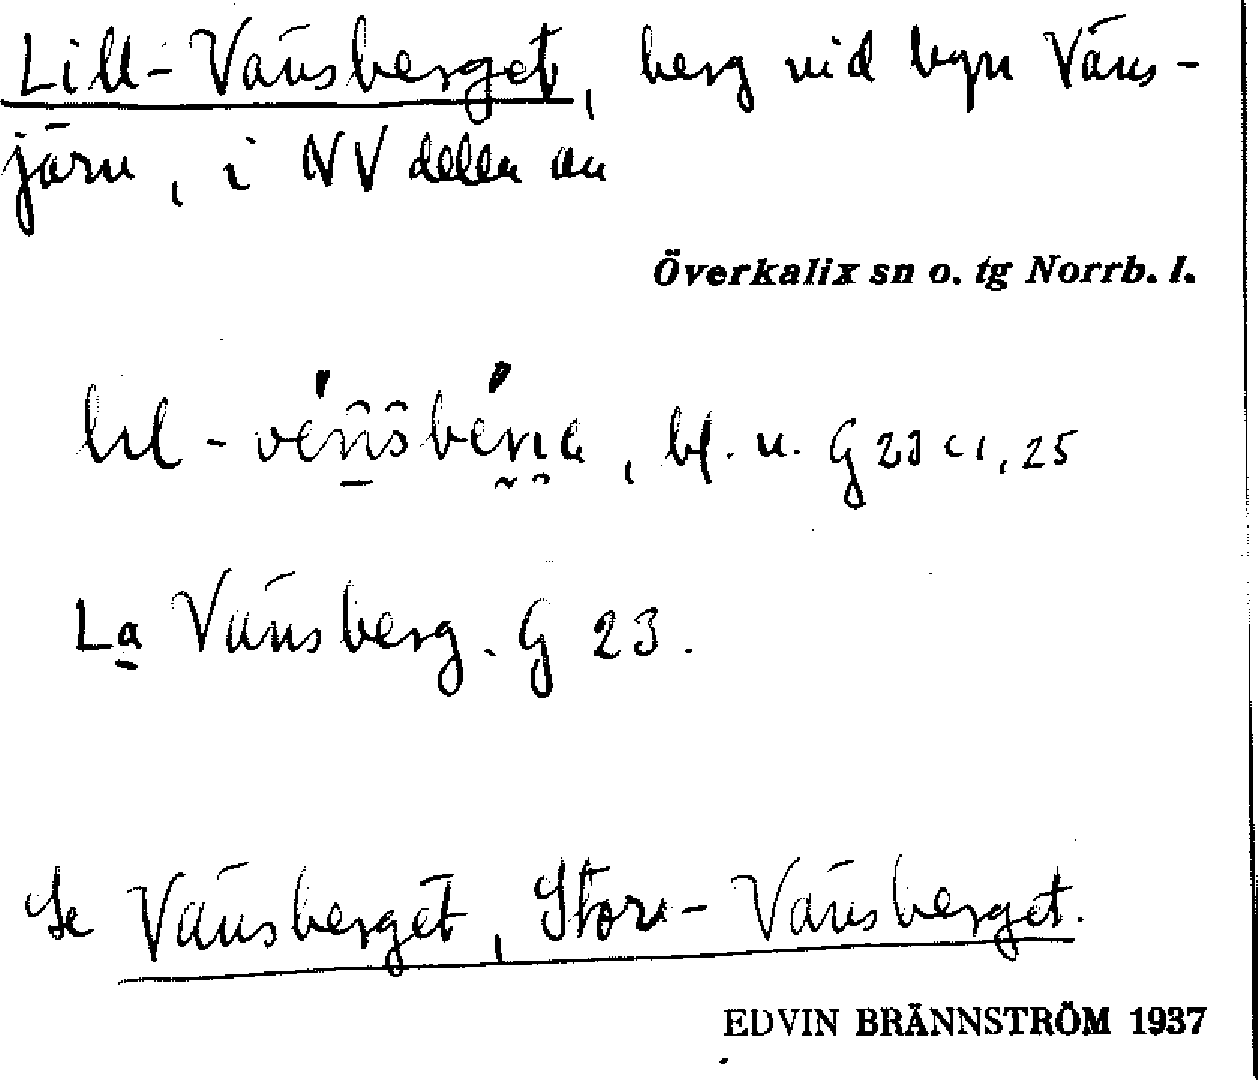 Lill-Vänsberget, berg vid byn Väns-
järv, i NV delen av
Överkalix sn o. tg Norrb. l.
lil -
La Vänsberg. G 23.
Se Vänsberget, Stor-Vänsberget.
EDVIN BRÄNNSTRÖM 1937